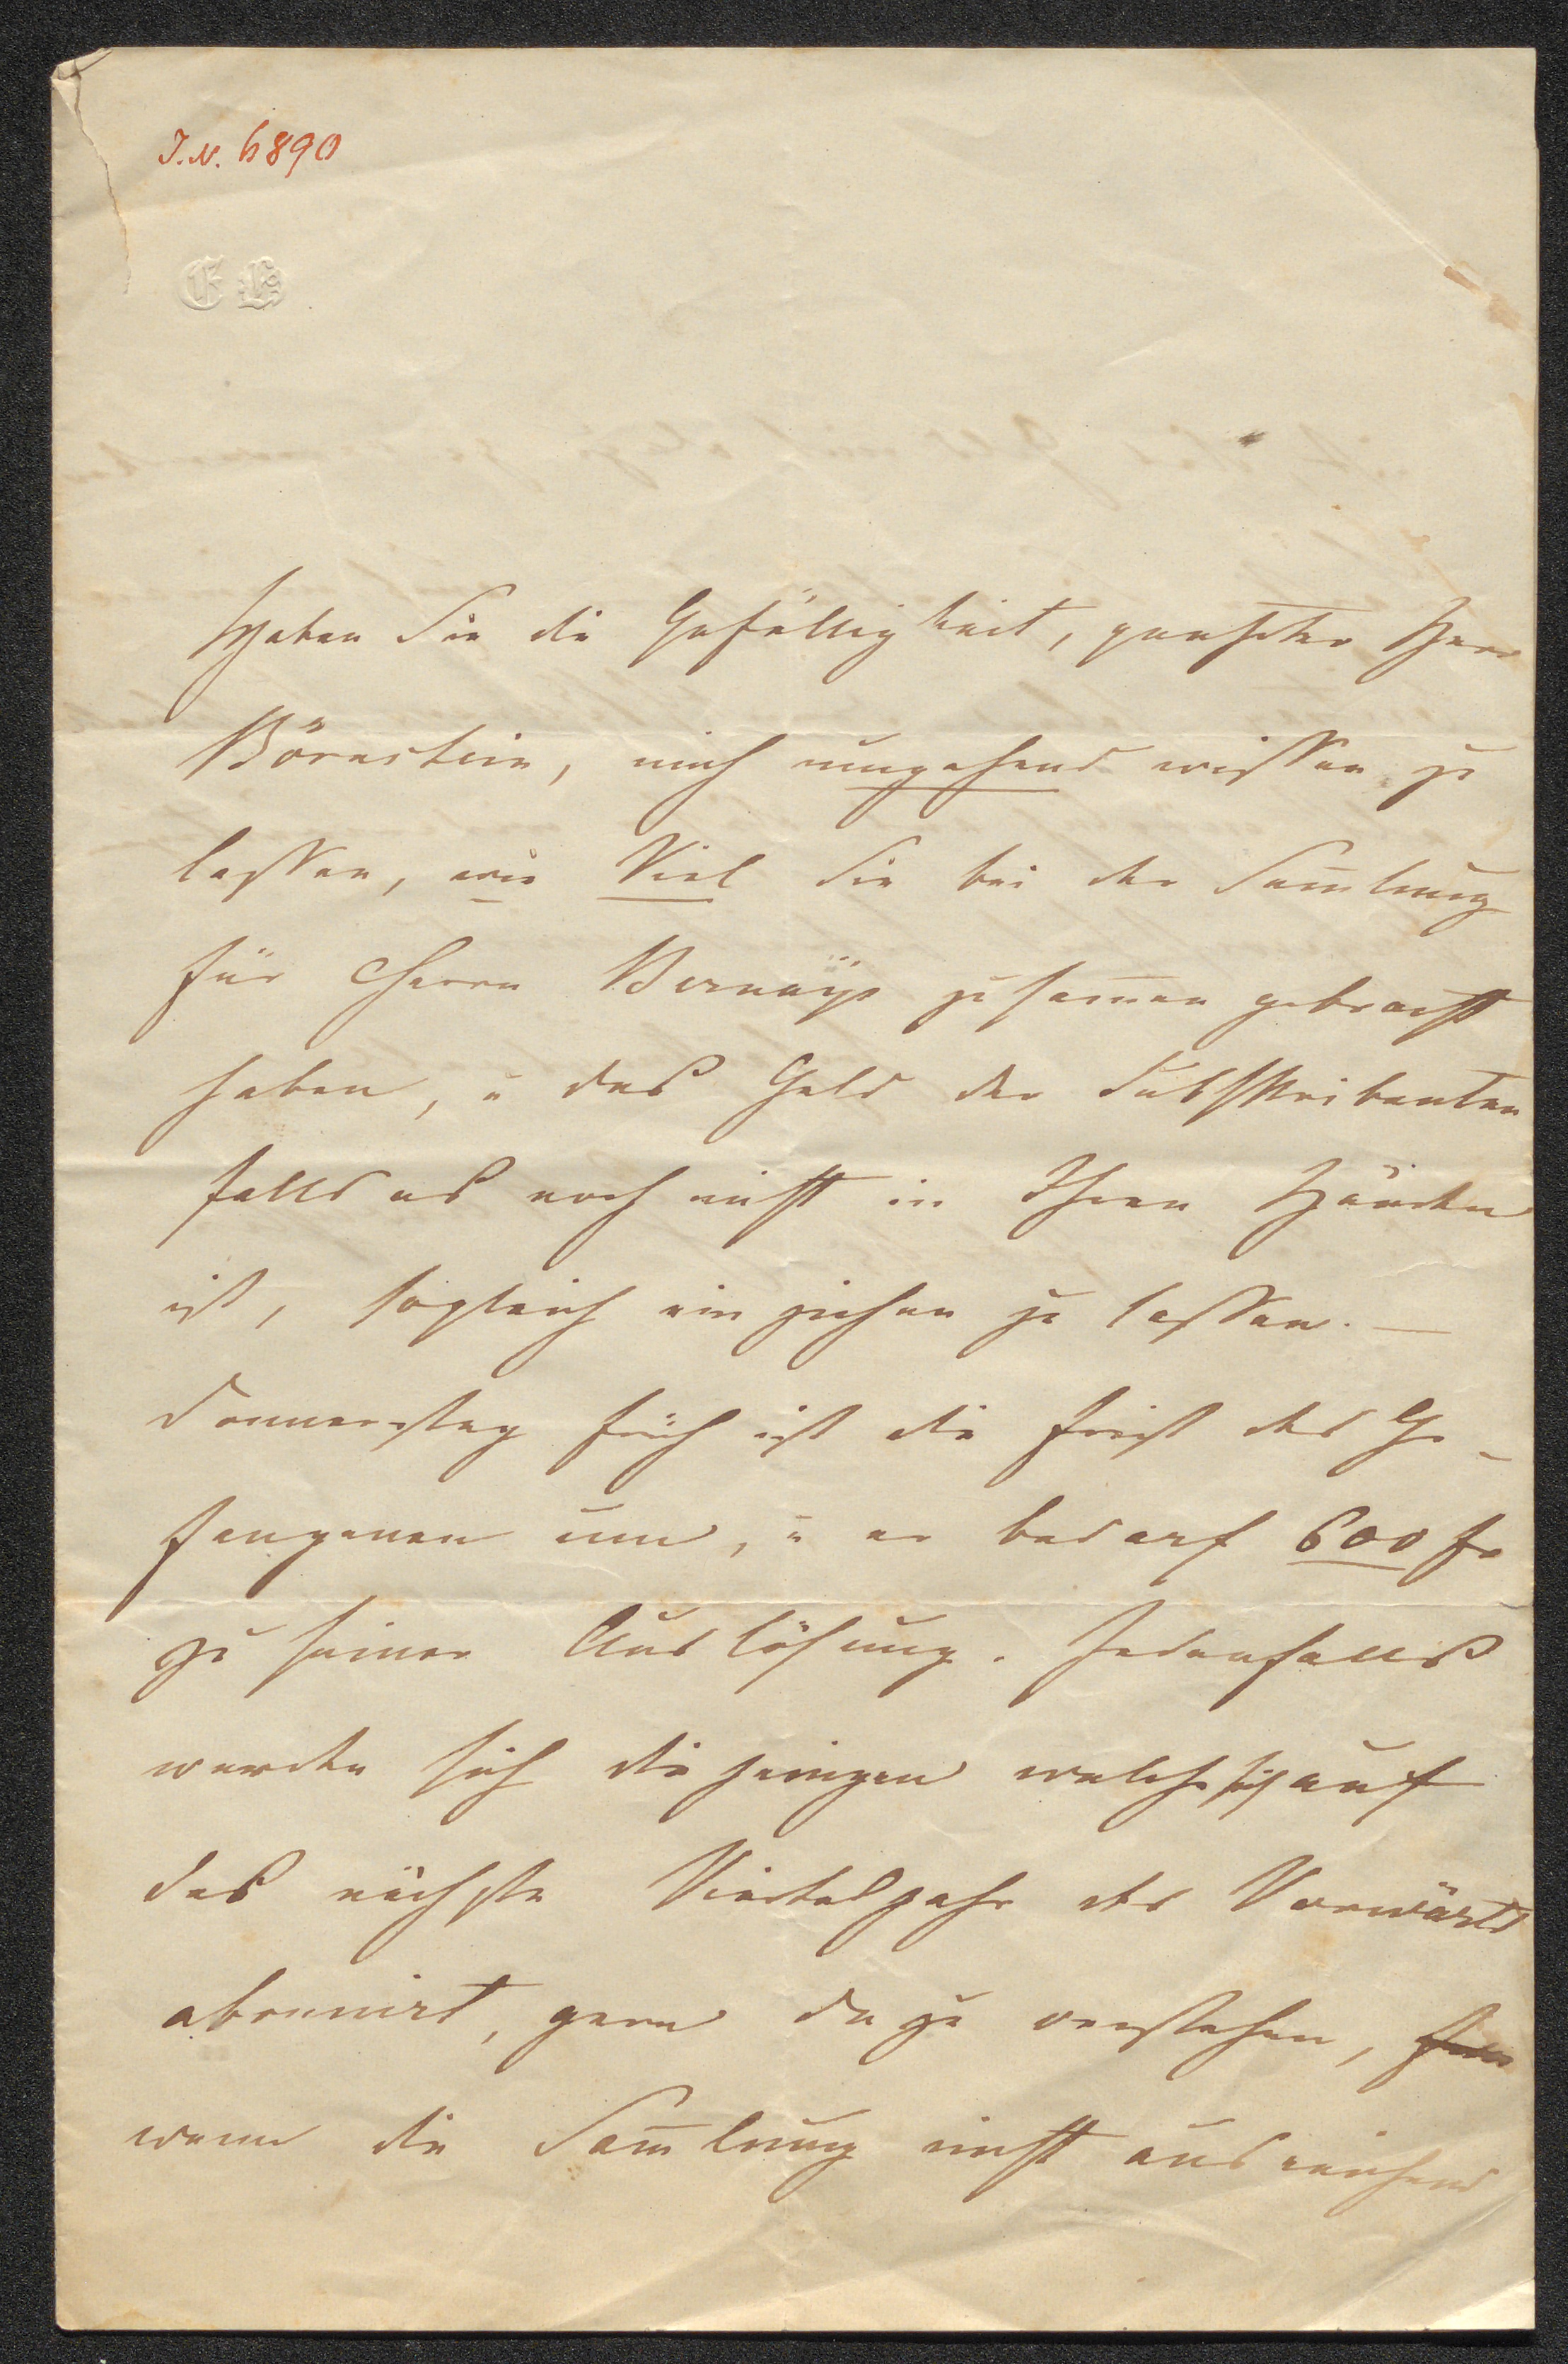 I.N. 6890
E B
Haben Sie die Gefälligkeit, geehrter Herr
Börnstein, mich umgehend wissen zu
lassen, wie Viel Sie bei der Sam̄lung
für Herrn Bernays zusam̄en gebracht
haben, u das Geld der Subskribenten
falls es noch nicht in Ihren Händen
ist, sogleich ein ziehen zu lassen. —
Donnerstag früh ist die Frist des Ge-
fangenen um, u er bedarf 600 fr
zu seiner Auslösung. Jedenfalls
werden sich diejenigen welche sich auf
das nächste Vierteljahr des Vorwärts
abonnirt, gern dazu verstehen,
wenn die Sam̄lung nicht ausreichend